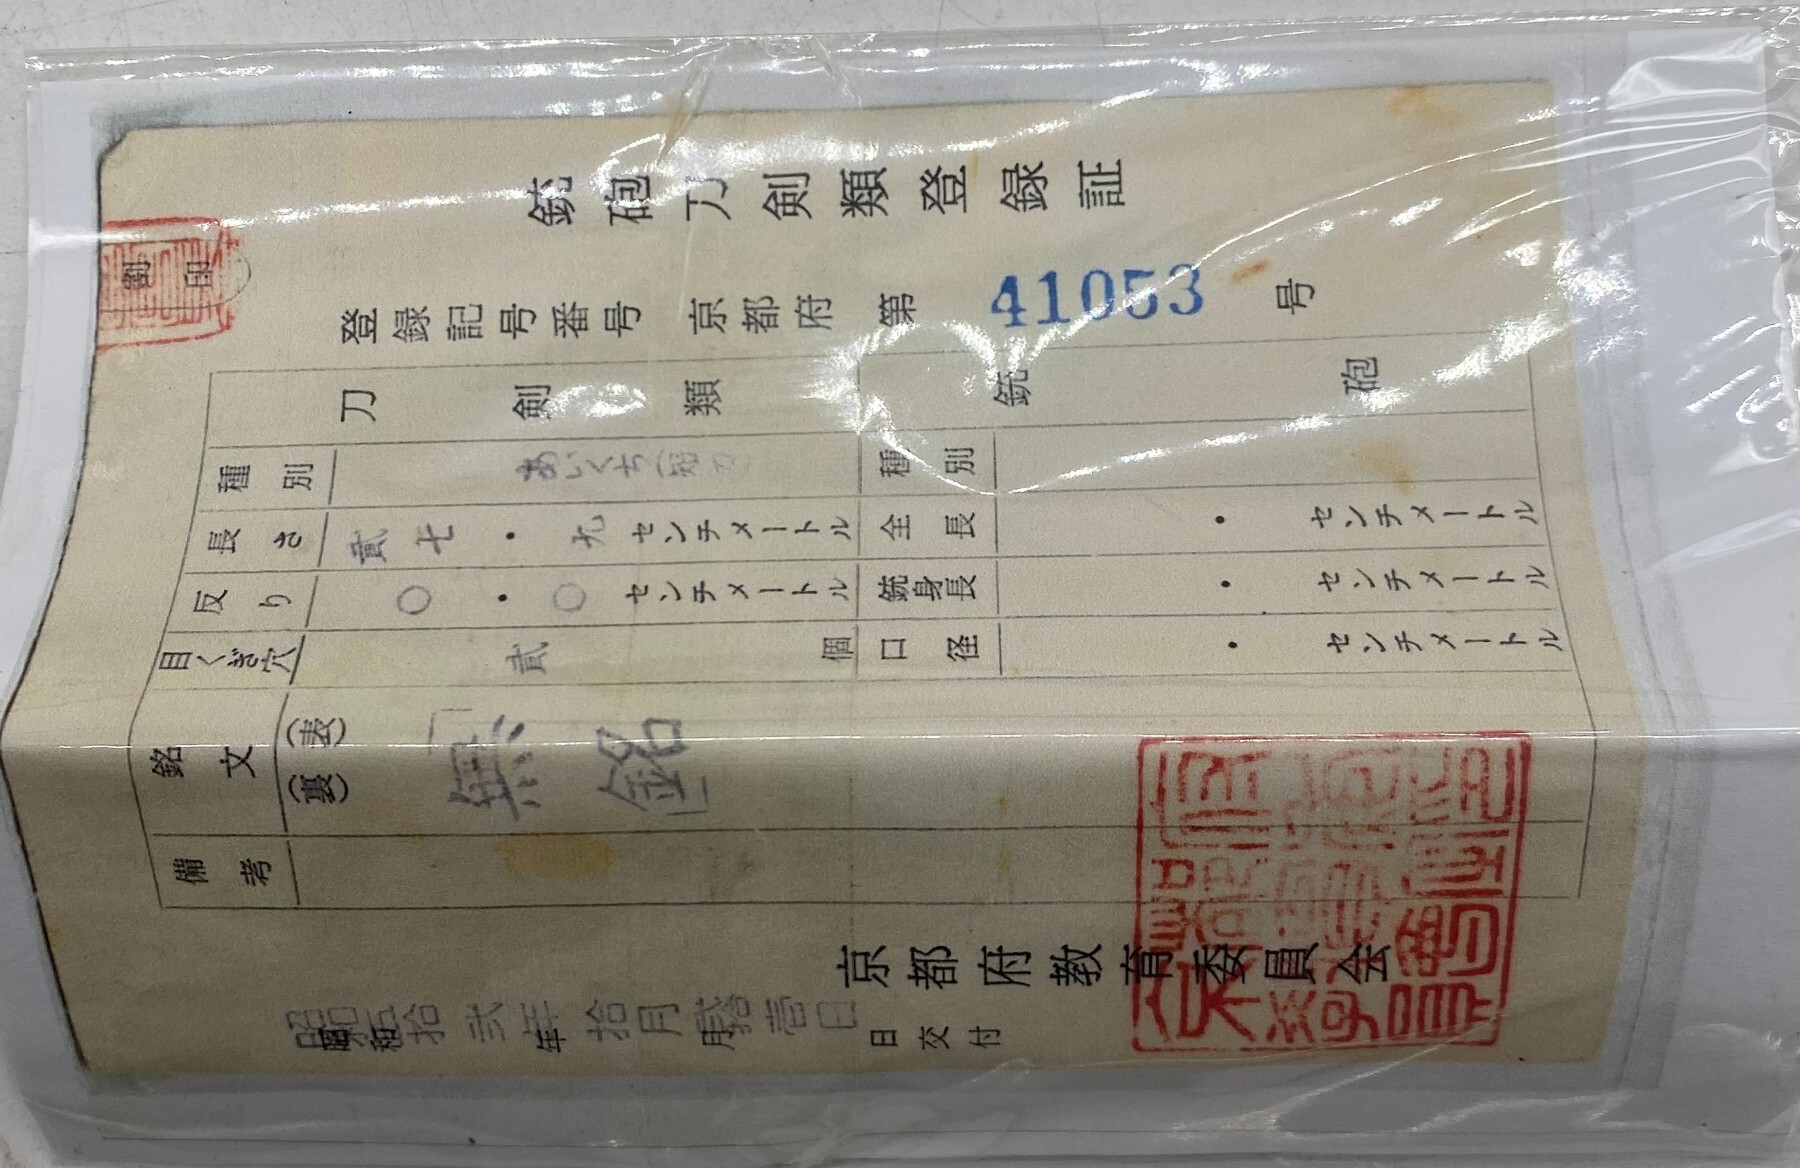 銃砲刀剣類登録証
割印
登録記号番号 京都府 第 41053 号
刀剣類 銃砲
種別 あいくち(短刀 種別
長さ 貳七・九センチメートル 全長 ・ センチメートル
反り 〇・〇センチメートル 銃身長 ・ センチメートル
目くぎ穴 貳 個 口径 ・ センチメートル
銘文 (表) 「無銘」
(裏)
備考
京都府教育委員会
昭和五拾弐年拾月弐拾壱日
昭和 年 月 日交付